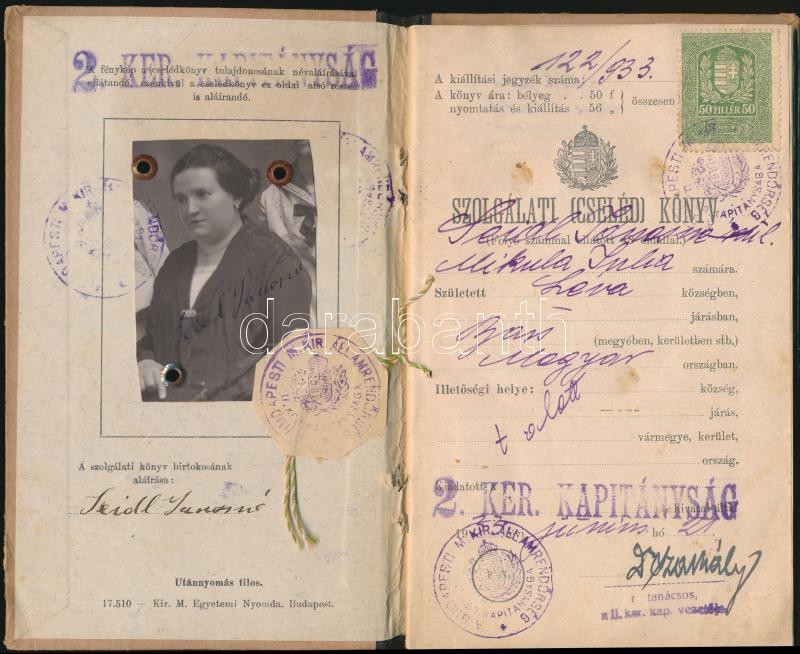 2. KER. KAPITÁNYSÁG
A fénykép a cselédkönyv tulajdonosának névaláírásával
ellátandó, ezenkívül a cselédkönyv ez oldal alsó részén
is aláírandó.
Seidl Jánosné
BUDAPESTI M. KIR. ÁLLAMRENDŐRSÉG
II. KER. KAPITÁNYSÁGA
A szolgálati könyv birtokosának
aláírása:
Seidl Janosné
Utánnyomás tilos.
17.510 — Kir. M. Egyetemi Nyomda, Budapest.
darabanth
A kiállítási jegyzék száma: 122/933.
A könyv ára: bélyeg . . 50 f
nyomtatás és kiállítás . 56 „
összesen
50 FILLÉR 50
SZOLGÁLATI (CSELÉD) KÖNYV
(Folyó számmal ellátott oldallal.)
Seidl Jánosné szül.
Mikula Julia számára.
Született Léva községben,
járásban,
Bars (megyében, kerületben stb.)
Magyar országban.
Illetőségi helye: község,
járás,
vármegye, kerület,
ország.
Kiadatott a
2. KER. KAPITÁNYSÁG
hivatal által
19 junius hó 21
A BUDAPESTI M. KIR. ÁLLAMRENDŐRSÉG
II. KER. KAPITÁNYSÁGA
r. tanácsos,
a II. ker. kap. vezetője